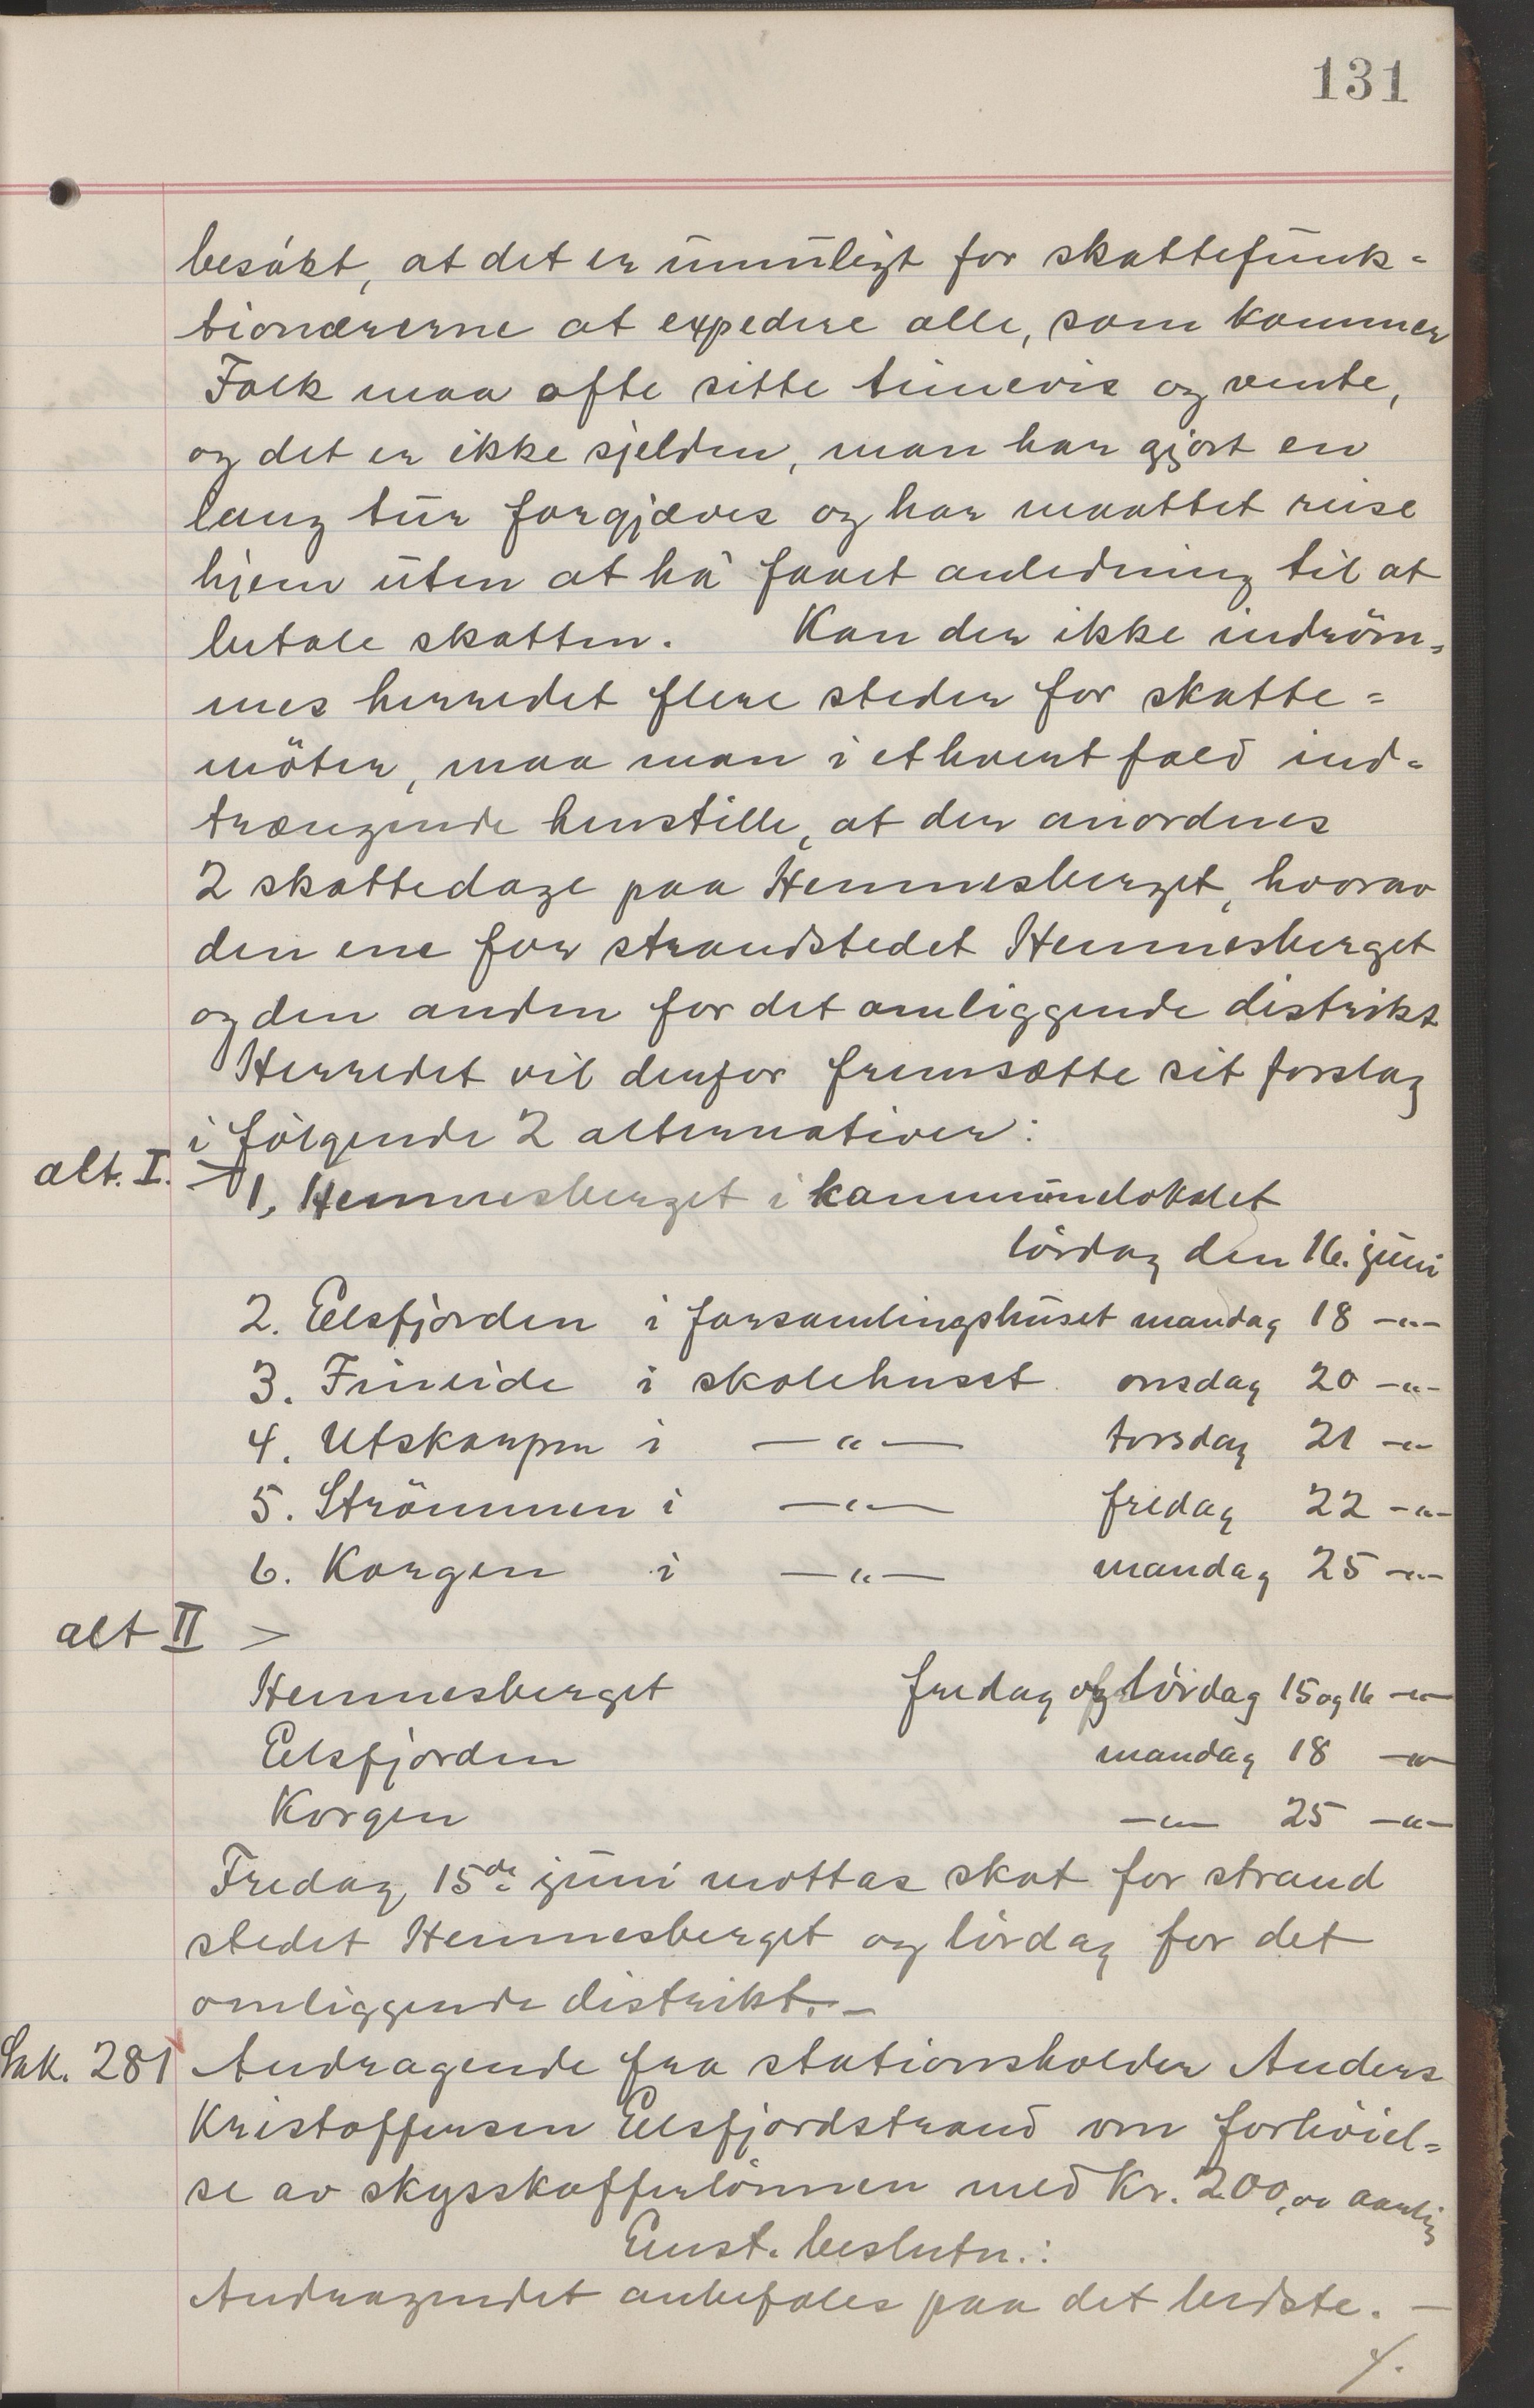 131
besökt, at det er umuligt for skattefunk-
tionærerne at expedere alle, som kommer
Folk maa ofte sitte timevis og vente,
og det er ikke sjelden, man har gjort en
lang tur forgjæves og har maattet reise
hjem uten at ha faaet anledning til at
betale skatten. Kan der ikke indröm-
mes herredet flere steder for skatte-
möter, maa man i ethvert fald ind-
trængende henstille, at der anordnes
2 skattedage paa Hemnesberget, hvorav
den ene for strandstedet Hemnesberget
og den anden for det omliggende distrikt
Herredet vil derfor fremsætte sit forslag
i fölgende 2 alternativer:
alt. I. > 1, Hemnesberget i kommunelokalet
lördag den 16. juni
2. Elsfjorden i forsamlingshuset mandag 18 -"-
3. Fineide i skolehuset onsdag 20 -"-
4. Utskarpen i -"- torsdag 21 -"-
5. Strömmen i -"- fredag 22 -"-
6. Korgen i -"- mandag 25 -"-
alt II >
Hemnesberget fredag og lördag 15 og 16 -"-
Elsfjorden mandag 18 -"-
Korgen -"- 25 -"-
Fredag 15de juni mottas skat for strand
stedet Hemnesberget og lördag for det
omliggende distrikt. -
Sak. 281 Andragende fra stationsholder Anders
Kristoffersen Elsfjordstrand om forhöiel-
se av skysskafferlönnen med Kr. 200,00 aarlig
Enst. beslutn.:
Andragendet anbefales paa det bedste. -